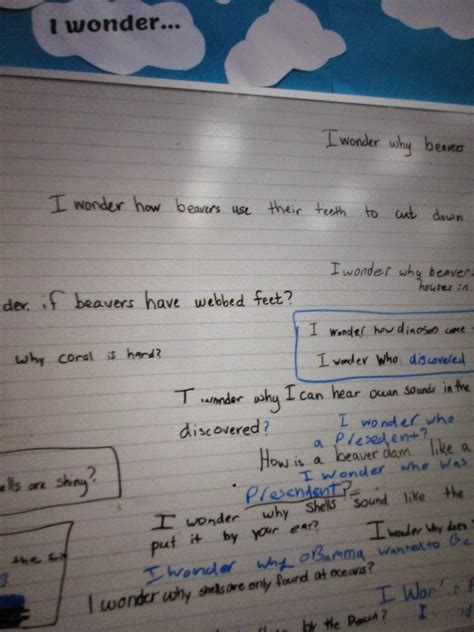 I wonder...
I wonder why beavers
I wonder how beavers use their teeth to cut down
I wonder why beaver
houses in
der if beavers have webbed feet?
I wonder how dinoson come
why coral is hard?
I wonder who discovered
I wonder why I can hear ocean sounds in the
discovered?
I wonder who
a Presedent?
How is a beaver dam like a
I wonder who was
ells are shiny?
Presendent?
I wonder why shells sound like the
put it by your ear?
I wonder why does
the
I wonder why oBamma wanted to be
I wonder why shells are only found at oceans?
I
by the Beach?
I